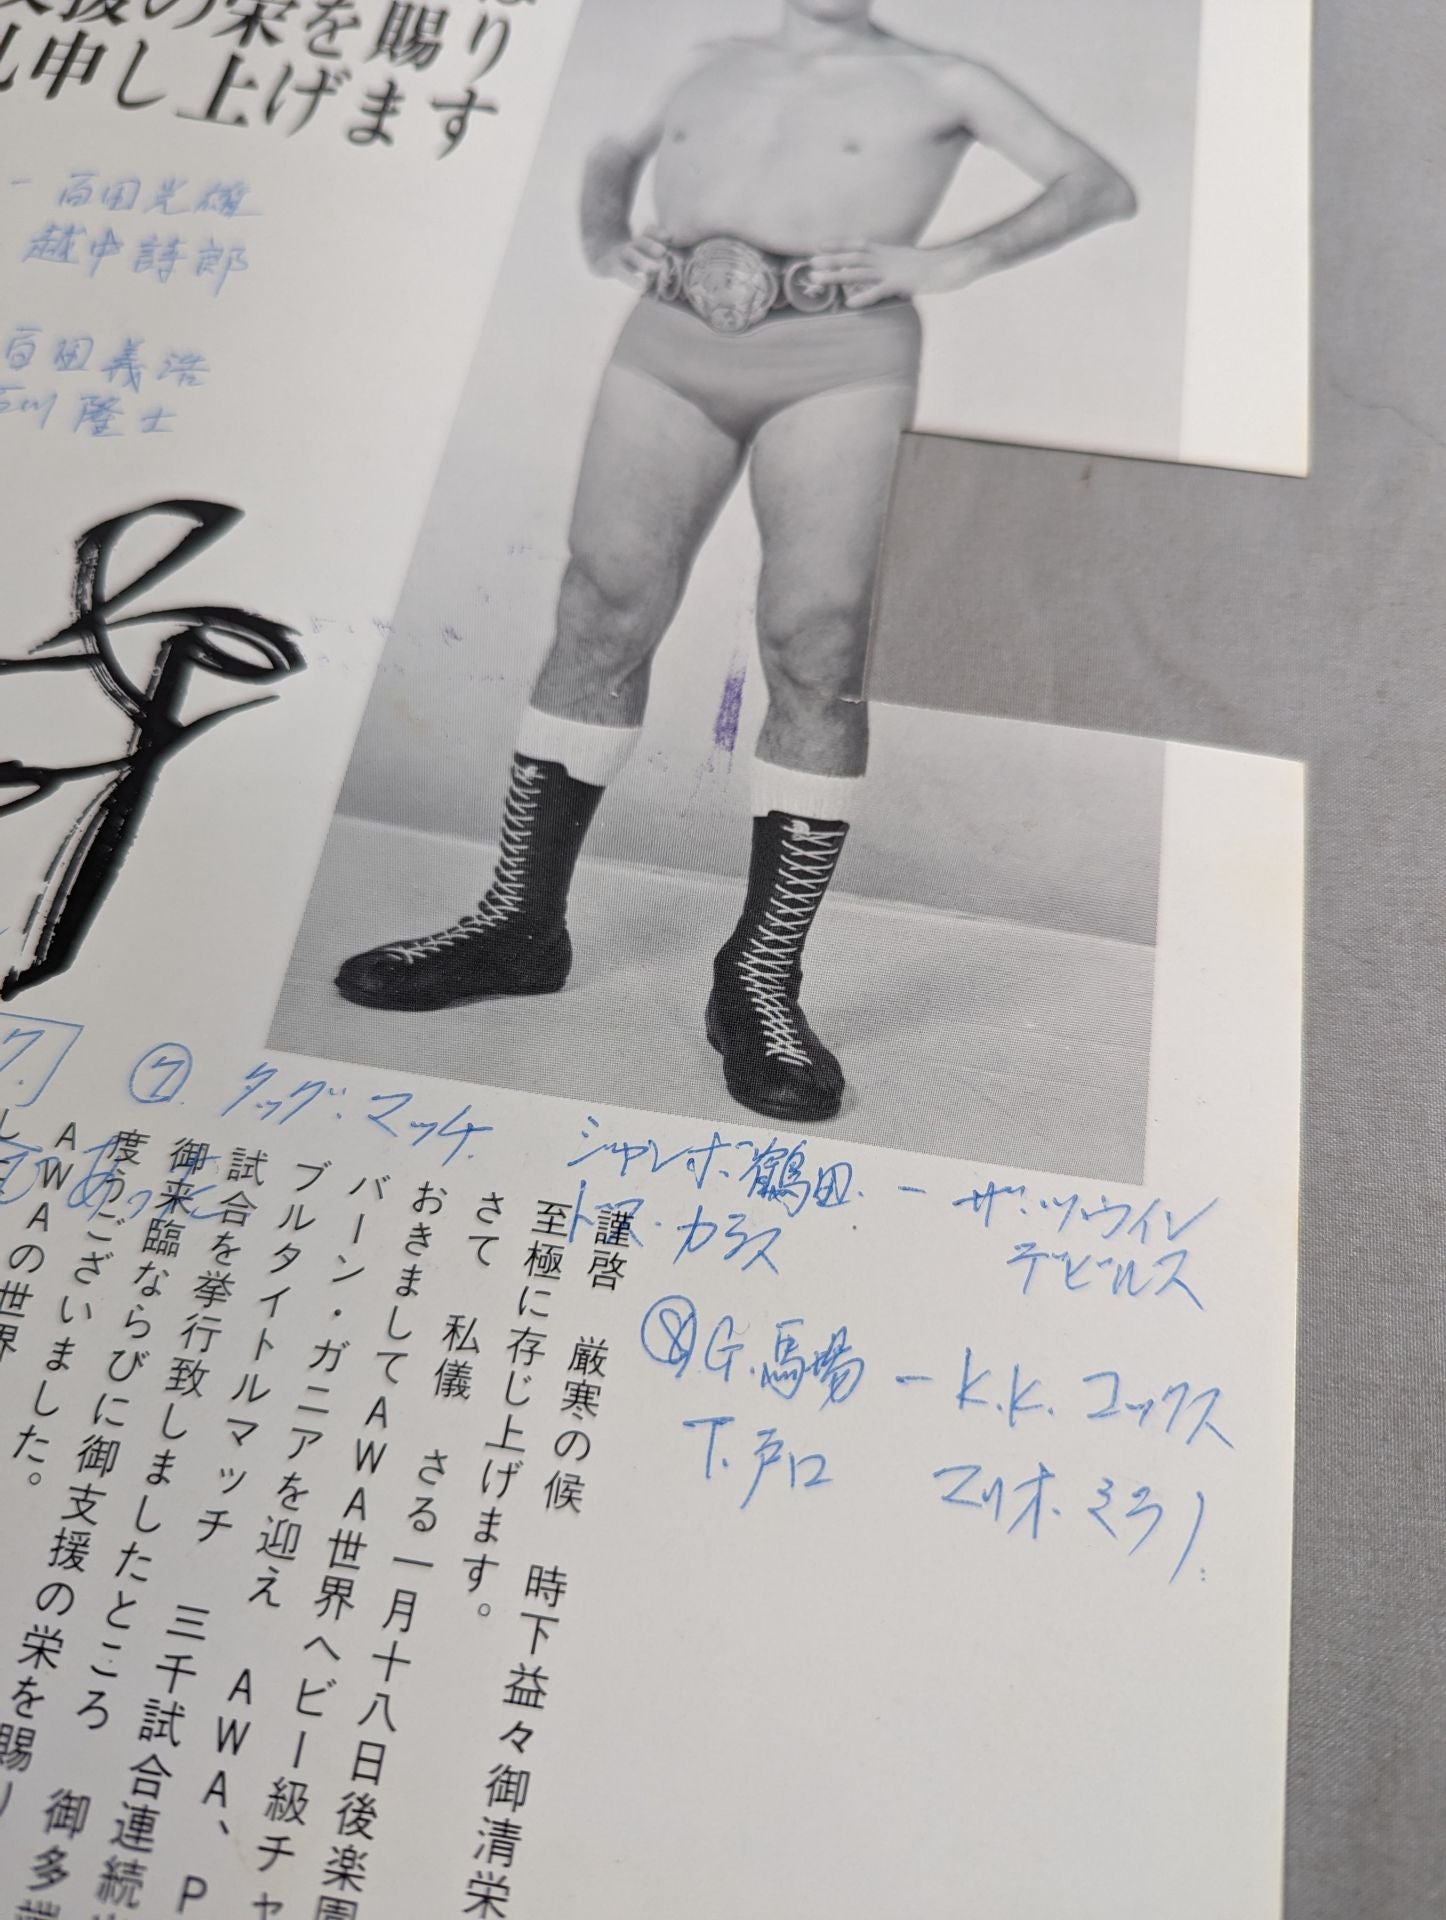 援の栄を賜り
礼申し上げます
ー 百田光雄
越中詩郎
百田義浩
石川隆士
⑦ タッグ・マッチ.
ジャンボ鶴田. ー ザ・ツウイン
トア・カマタ
デビルス
⑧ G.馬場 ー K.K. コックス
T.戸口 マリオ.ミラノ.
謹啓 厳寒の候 時下益々御清栄
至極に存じ上げます。
さて 私儀 さる一月十八日後楽園
おきましてAWA世界ヘビー級チャ
バーン・ガニアを迎え AWA、P
ブルタイトルマッチ 三千試合連続
試合を挙行致しましたところ 御多端
御来臨ならびに御支援の栄を賜り
度うございました。
AWAの世界